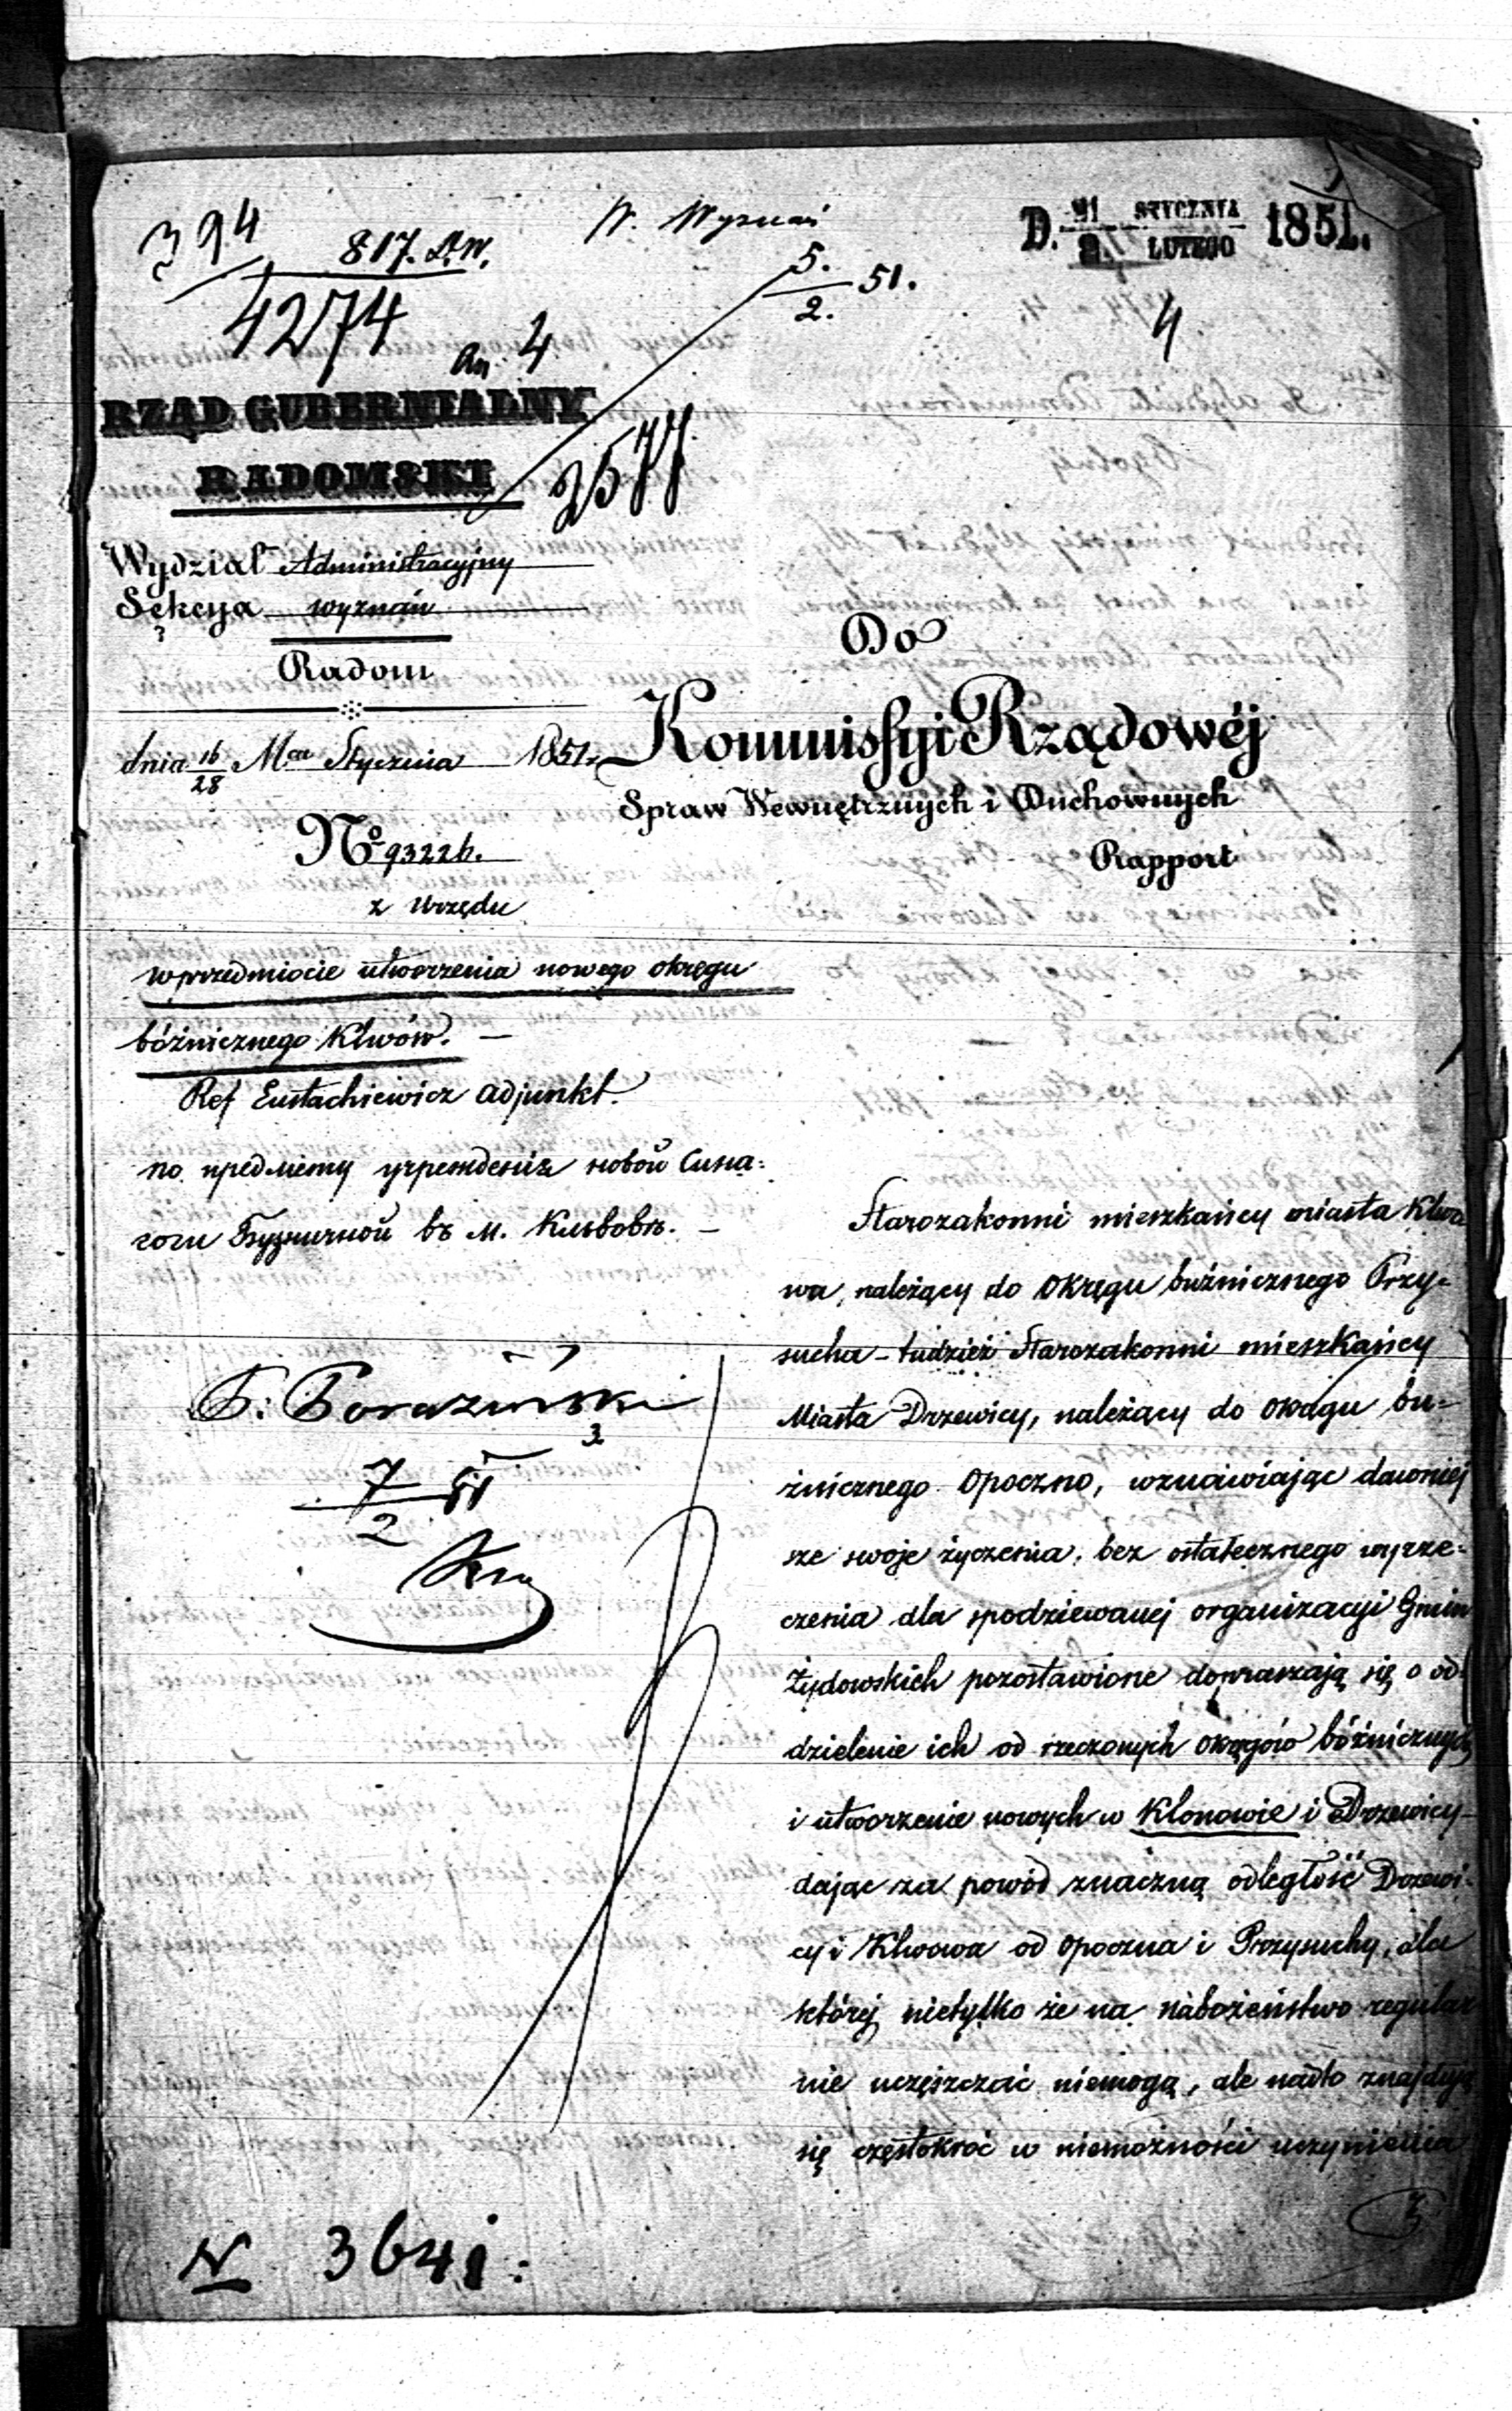 394
817. D.W.
4274
an 4
W. Wyznań
5./2. 51.
D. 21 STYCZNIA / 2. LUTEGO 1851.
4
RZĄD GUBERNIALNY
RADOMSKI
2577
Wydział Administracyjny
Sekcya wyznań
Radom
dnia 16/28 Mca Stycznia 1851 r.
No 93226.
z Urzędu
Do
Kommissyi Rządowéj
Spraw Wewnętrznych i Duchownych
Rapport
w przedmiocie utworzenia nowego okręgu
bóżnicznego Klwów. —
Ref Eustachiewicz Adjunkt.
по предмету учрежденія новой Сина=
гоги въ м. Кльвовѣ. —
7/2 51
Starozakonni mieszkańcy miasta Klwo
wa, należący do Okręgu buźnicznego Przy=
sucha – tudzież Starozakonni mieszkańcy
Miasta Drzewicy, należący do okręgu bu=
źnicznego Opoczno, wznawiając dawniej
sze swoje życzenia, bez ostatecznego wyrze=
czenia dla spodziewanej organizacyi Gmin
Żydowskich pozostawione dopraszają się o od=
dzielenie ich od rzeczonych okręgów bóźnicznych
i utworzenie nowych w Klonowie i Drzewicy –
dając za powód znaczną odległość Drzewi=
cy i Klwowa od Opoczna i Przysuchy, dla
której nietylko że na nabożeństwo regular
nie uczęszczać niemogą, ale nadto znajdują
się częstokroć w niemożności uczynienia
3
N 3641.